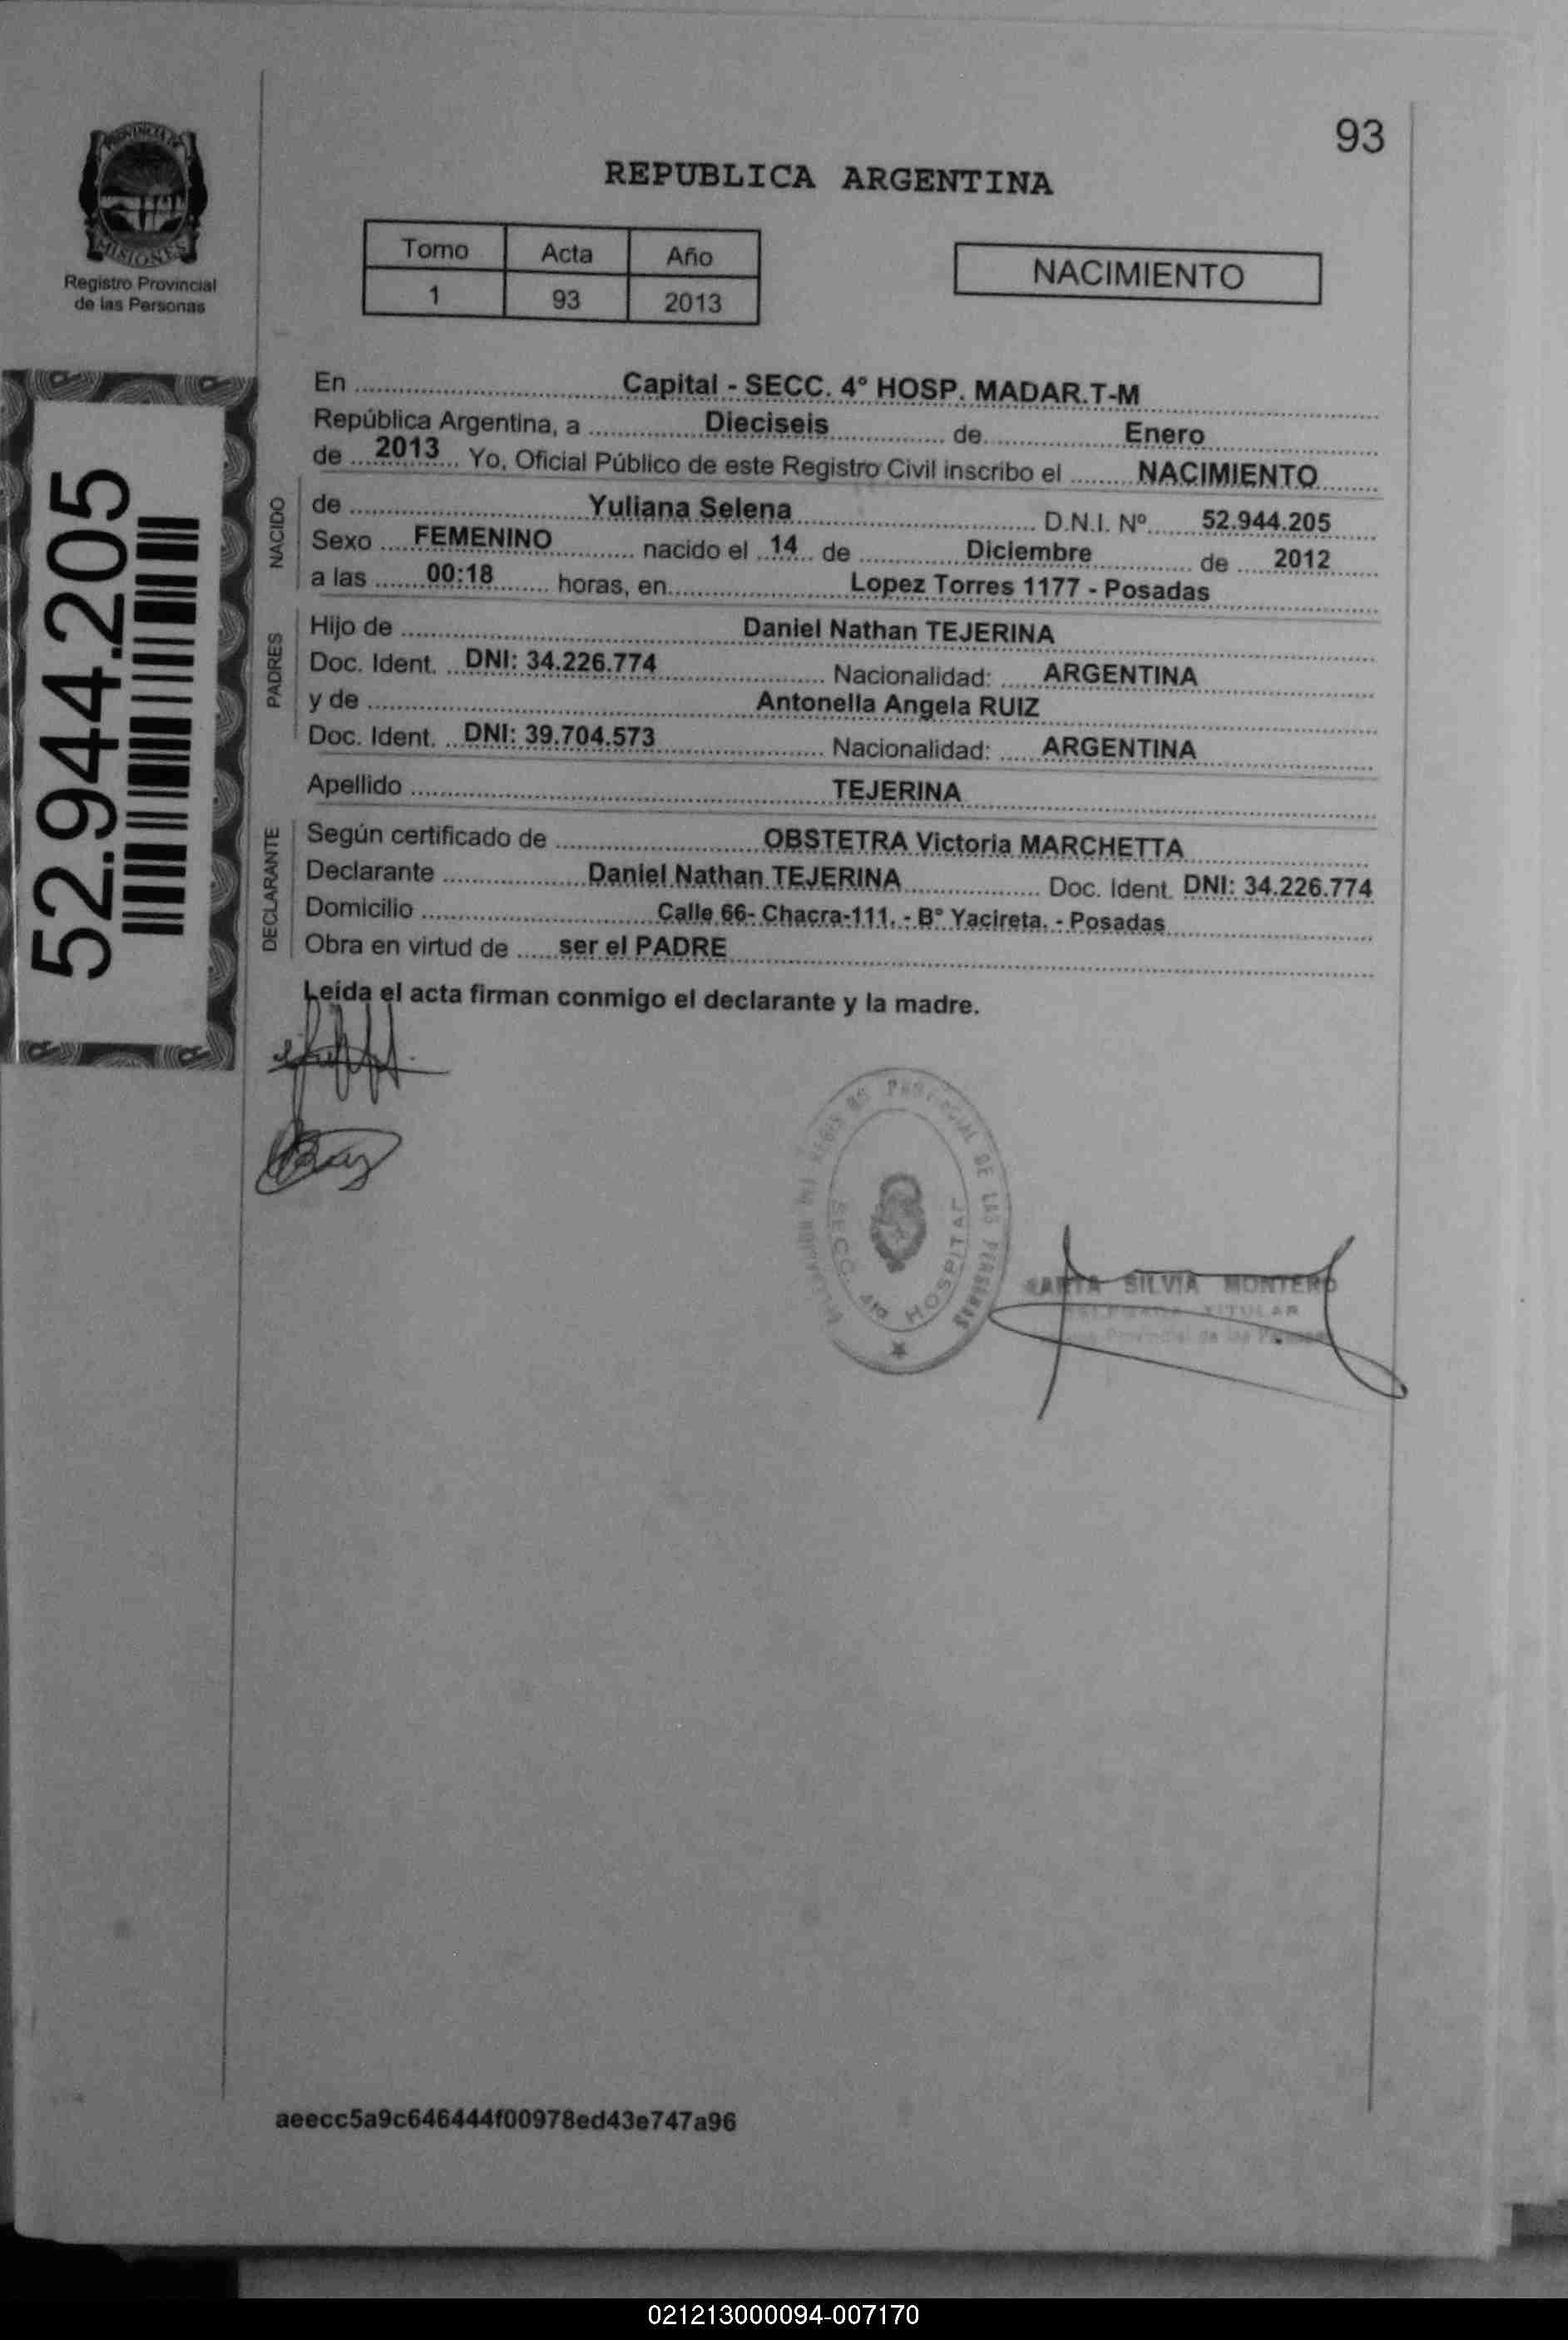 93
PROVINCIA DE
MISIONES
Registro Provincial
de las Personas
REPUBLICA ARGENTINA
Tomo Acta Año
1 93 2013
NACIMIENTO
52.944.205
En ........ Capital - SECC. 4° HOSP. MADAR.T-M
República Argentina, a ........ Dieciseis ........ de ........ Enero
de ... 2013 ... Yo, Oficial Público de este Registro Civil inscribo el ........ NACIMIENTO
NACIDO
de ........ Yuliana Selena ........ D.N.I. Nº ........ 52.944.205
Sexo .... FEMENINO ........ nacido el .. 14 .. de ........ Diciembre ........ de ..... 2012
a las ....... 00:18 ........ horas, en ........ Lopez Torres 1177 - Posadas
PADRES
Hijo de ........ Daniel Nathan TEJERINA
Doc. Ident. ... DNI: 34.226.774 ........ Nacionalidad: ..... ARGENTINA
y de ........ Antonella Angela RUIZ
Doc. Ident. ... DNI: 39.704.573 ........ Nacionalidad: ..... ARGENTINA
Apellido ........ TEJERINA
DECLARANTE
Según certificado de ........ OBSTETRA Victoria MARCHETTA
Declarante ........ Daniel Nathan TEJERINA ........ Doc. Ident. DNI: 34.226.774
Domicilio ........ Calle 66- Chacra-111. - B° Yacireta. - Posadas
Obra en virtud de ...... ser el PADRE
Leída el acta firman conmigo el declarante y la madre.
PROVINCIAL DE LAS PERSONAS
SECC. 4ta HOSPITAL
SILVIA MONTERO
TITULAR
Provincial de las
aeecc5a9c646444f00978ed43e747a96
021213000094-007170